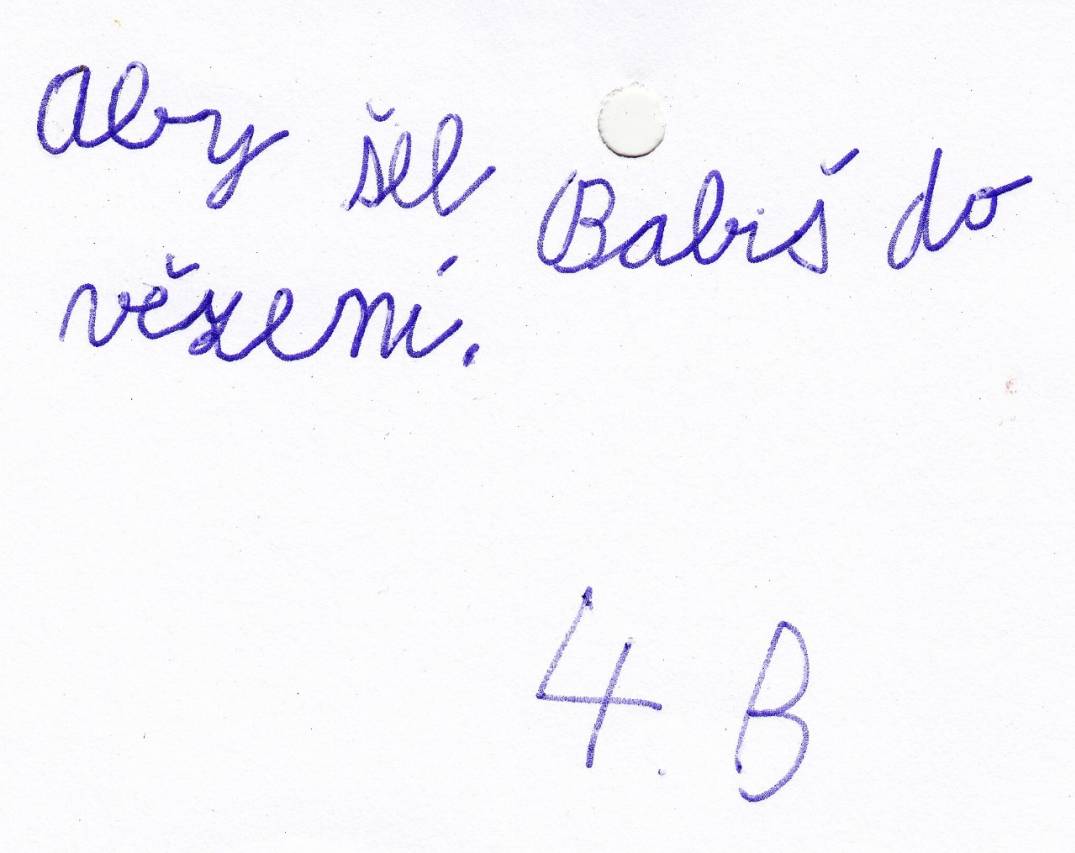 Aby šel Babiš do
vězení.
4. B